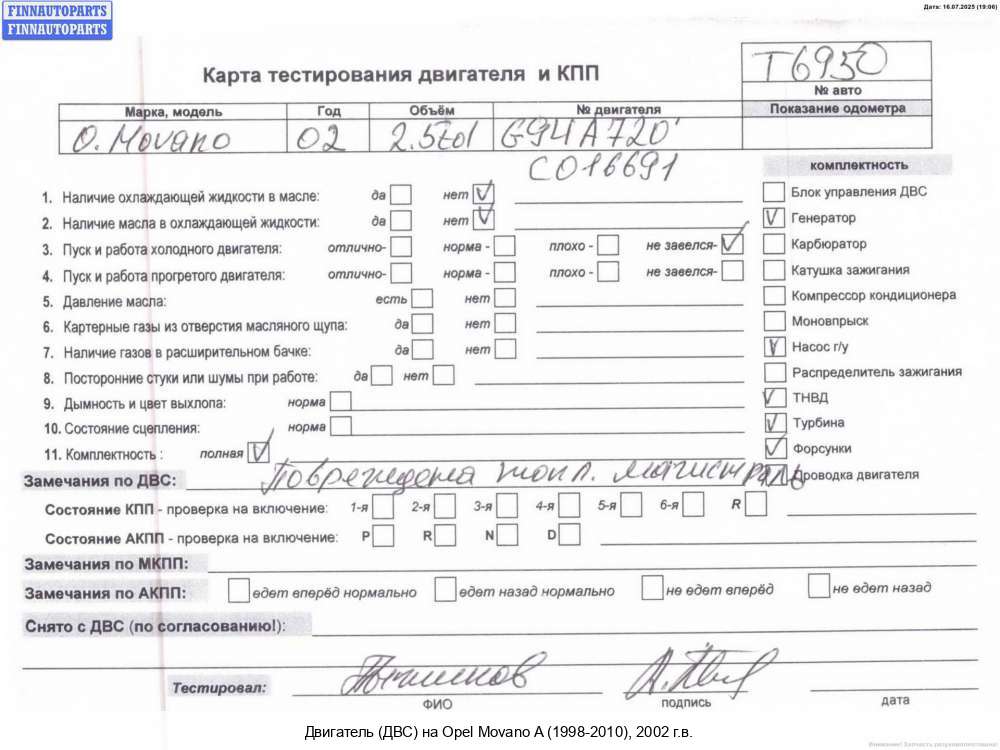 FINNAUTOPARTS
FINNAUTOPARTS
Дата: 16.07.2025 (19:06)
Карта тестирования двигателя и КПП
T6950
№ авто
Марка, модель Год Объём № двигателя Показание одометра
O. Movano 02 2.5tdi G9UA720
C016691
комплектность
1. Наличие охлаждающей жидкости в масле: да нет
Блок управления ДВС
2. Наличие масла в охлаждающей жидкости: да нет
Генератор
3. Пуск и работа холодного двигателя: отлично- норма - плохо - не завелся-
Карбюратор
4. Пуск и работа прогретого двигателя: отлично- норма - плохо - не завелся-
Катушка зажигания
5. Давление масла: есть нет
Компрессор кондиционера
6. Картерные газы из отверстия масляного щупа: да нет
Моновпрыск
7. Наличие газов в расширительном бачке: да нет
Насос г/у
8. Посторонние стуки или шумы при работе: да нет
Распределитель зажигания
9. Дымность и цвет выхлопа: норма
ТНВД
10. Состояние сцепления: норма
Турбина
11. Комплектность : полная
Форсунки
Замечания по ДВС: Повреждена топл. магистраль
Проводка двигателя
Состояние КПП - проверка на включение: 1-я 2-я 3-я 4-я 5-я 6-я R
Состояние АКПП - проверка на включение: P R N D
Замечания по МКПП:
Замечания по АКПП: едет вперёд нормально едет назад нормально не едет вперёд не едет назад
Снято с ДВС (по согласованию!):
Тестировал:
ФИО подпись дата
Двигатель (ДВС) на Opel Movano A (1998-2010), 2002 г.в.
Внимание! Запчасть разукомплектована!